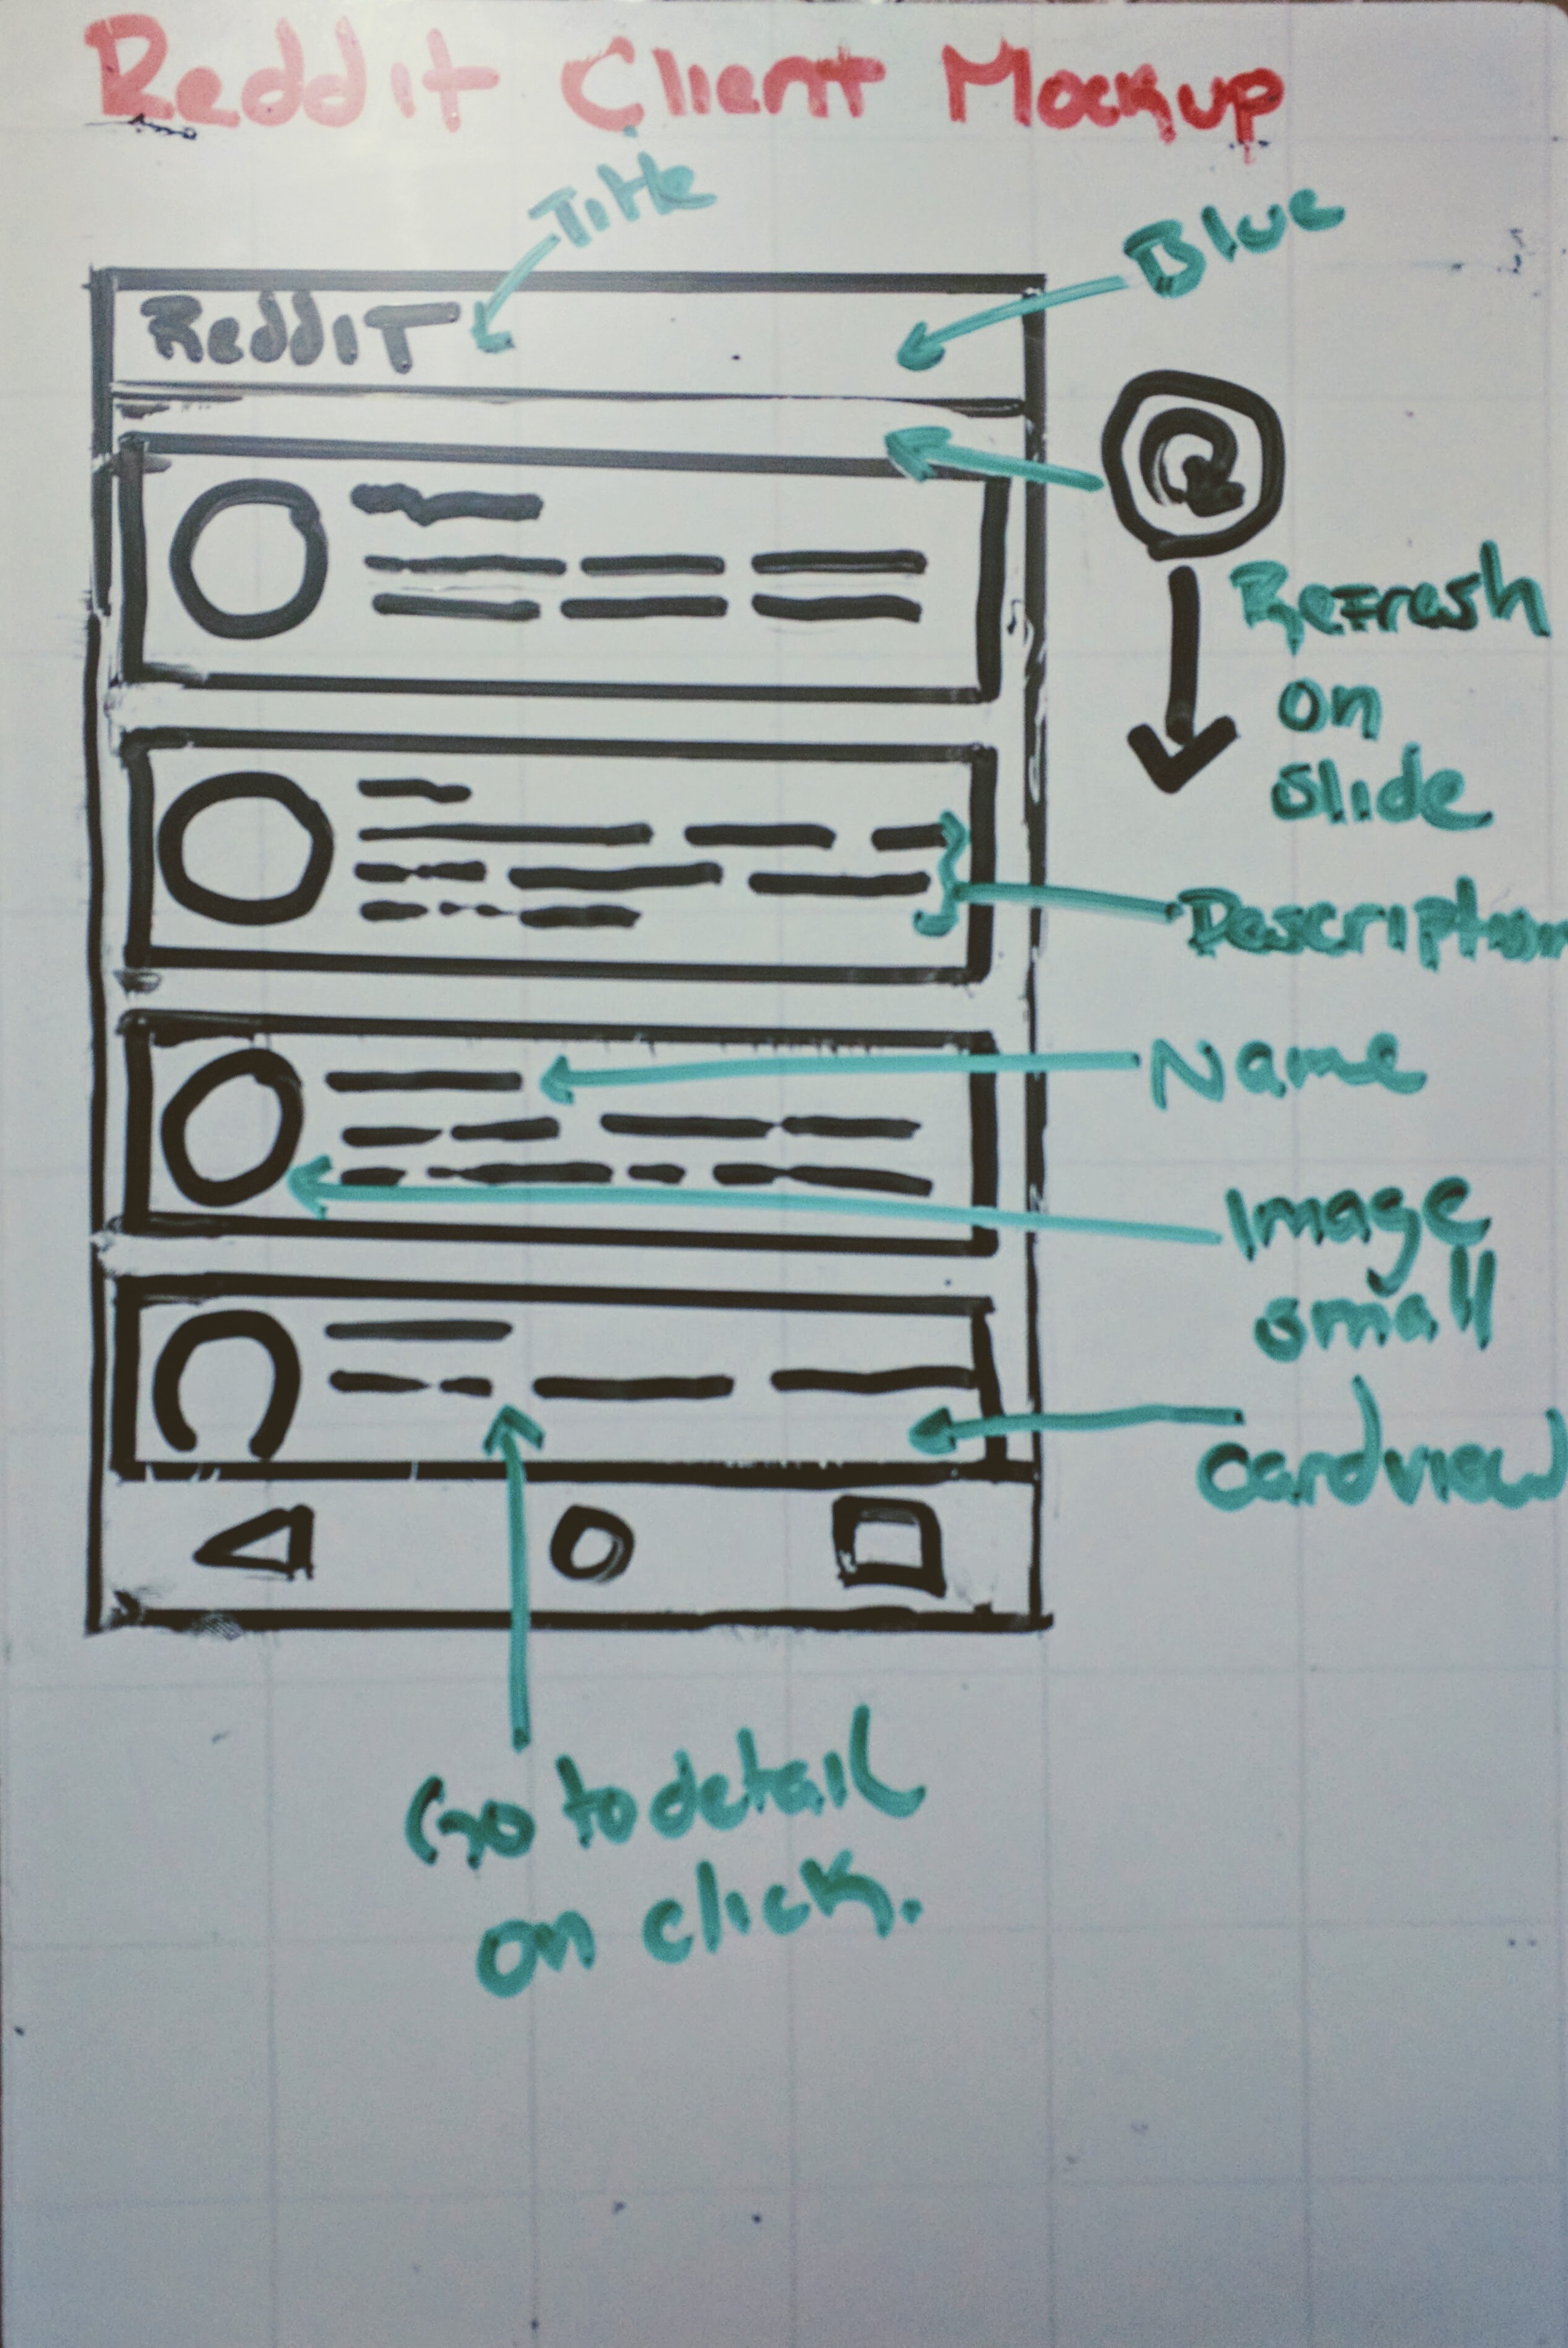 Reddit Client Mockup
Title
Blue
Reddit
Refresh
on
slide
Description
Name
Image
small
cardview
Go to detail
on click.